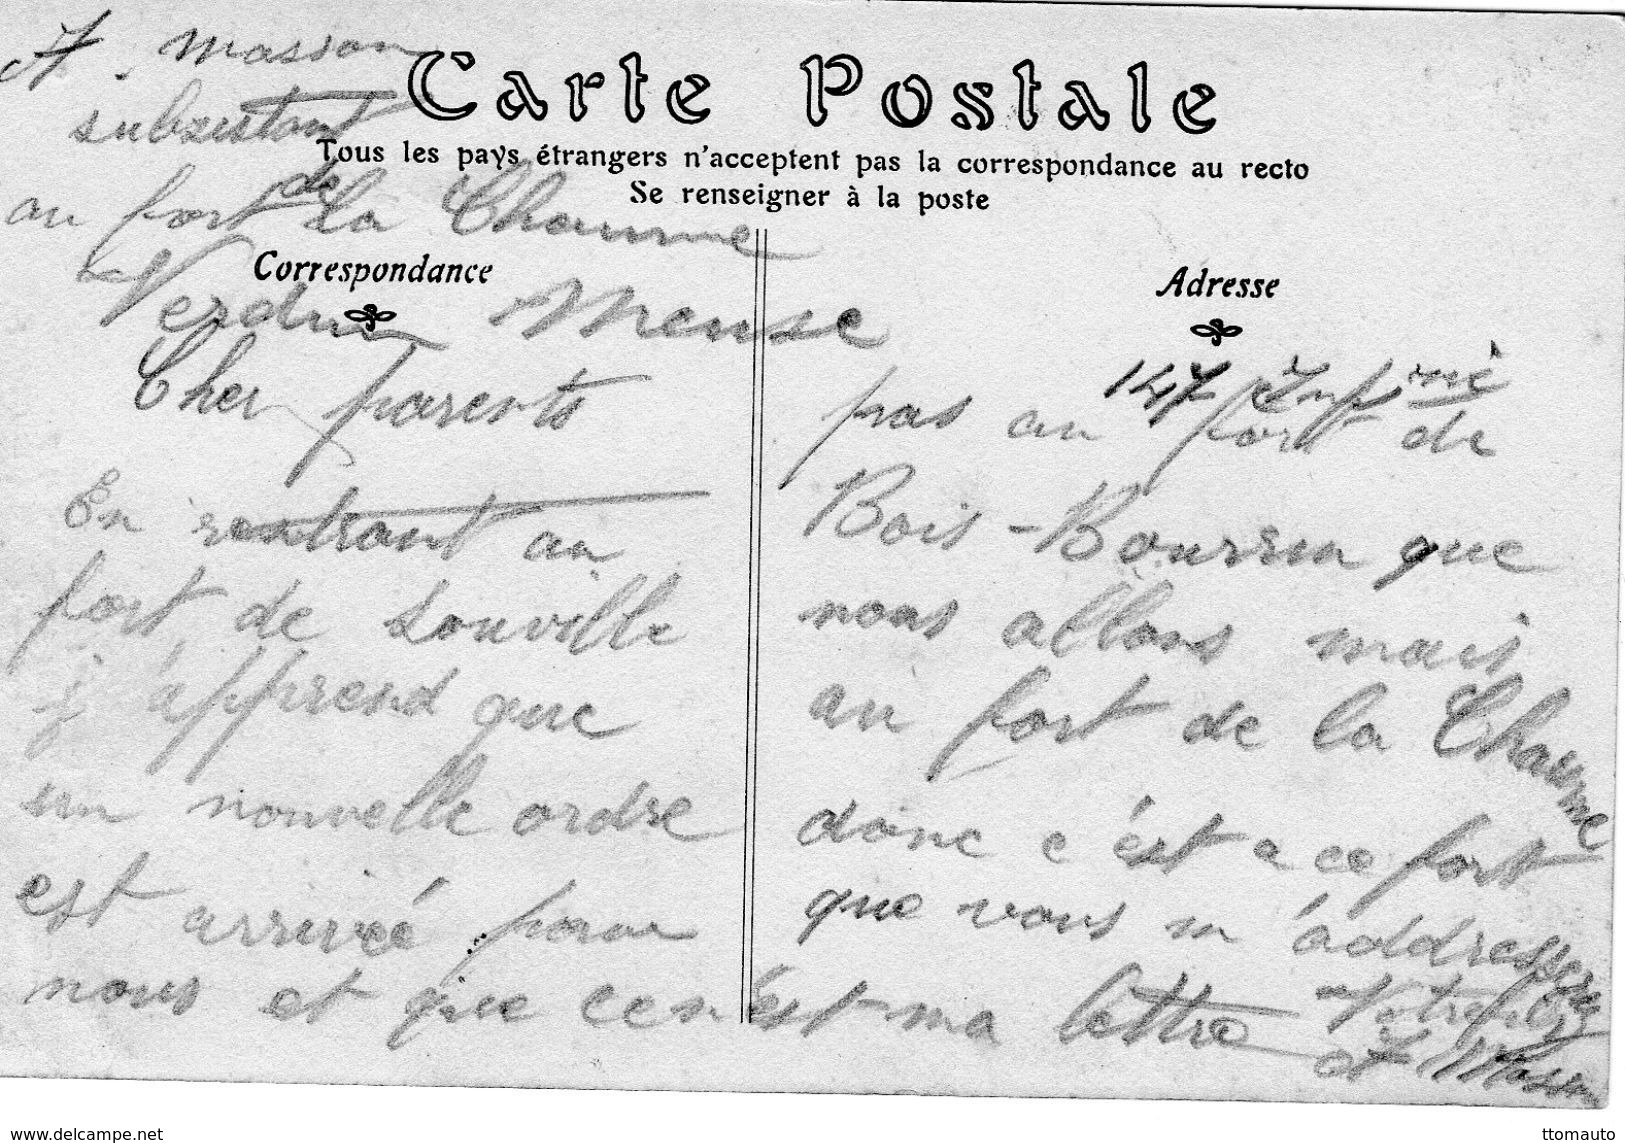 A. Masson
subsistant
Carte Postale
Tous les pays étrangers n'acceptent pas la correspondance au recto
Se renseigner à la poste
au fort de La Chaume
Verdun Meuse
Correspondance
Cher parents
En rentrant au
fort de Souville
j'apprend que
un nouvelle ordre
est arrivée pour
nous et que ce n'est
Adresse
147 Inf
pas au fort de
Bois-Bourru que
nous allons mais
au fort de la Chaume
donc c'ést a ce fort
que vous m'áddresserez
ma lettre Votre fils
A Masson
www.delcampe.net
ttomauto